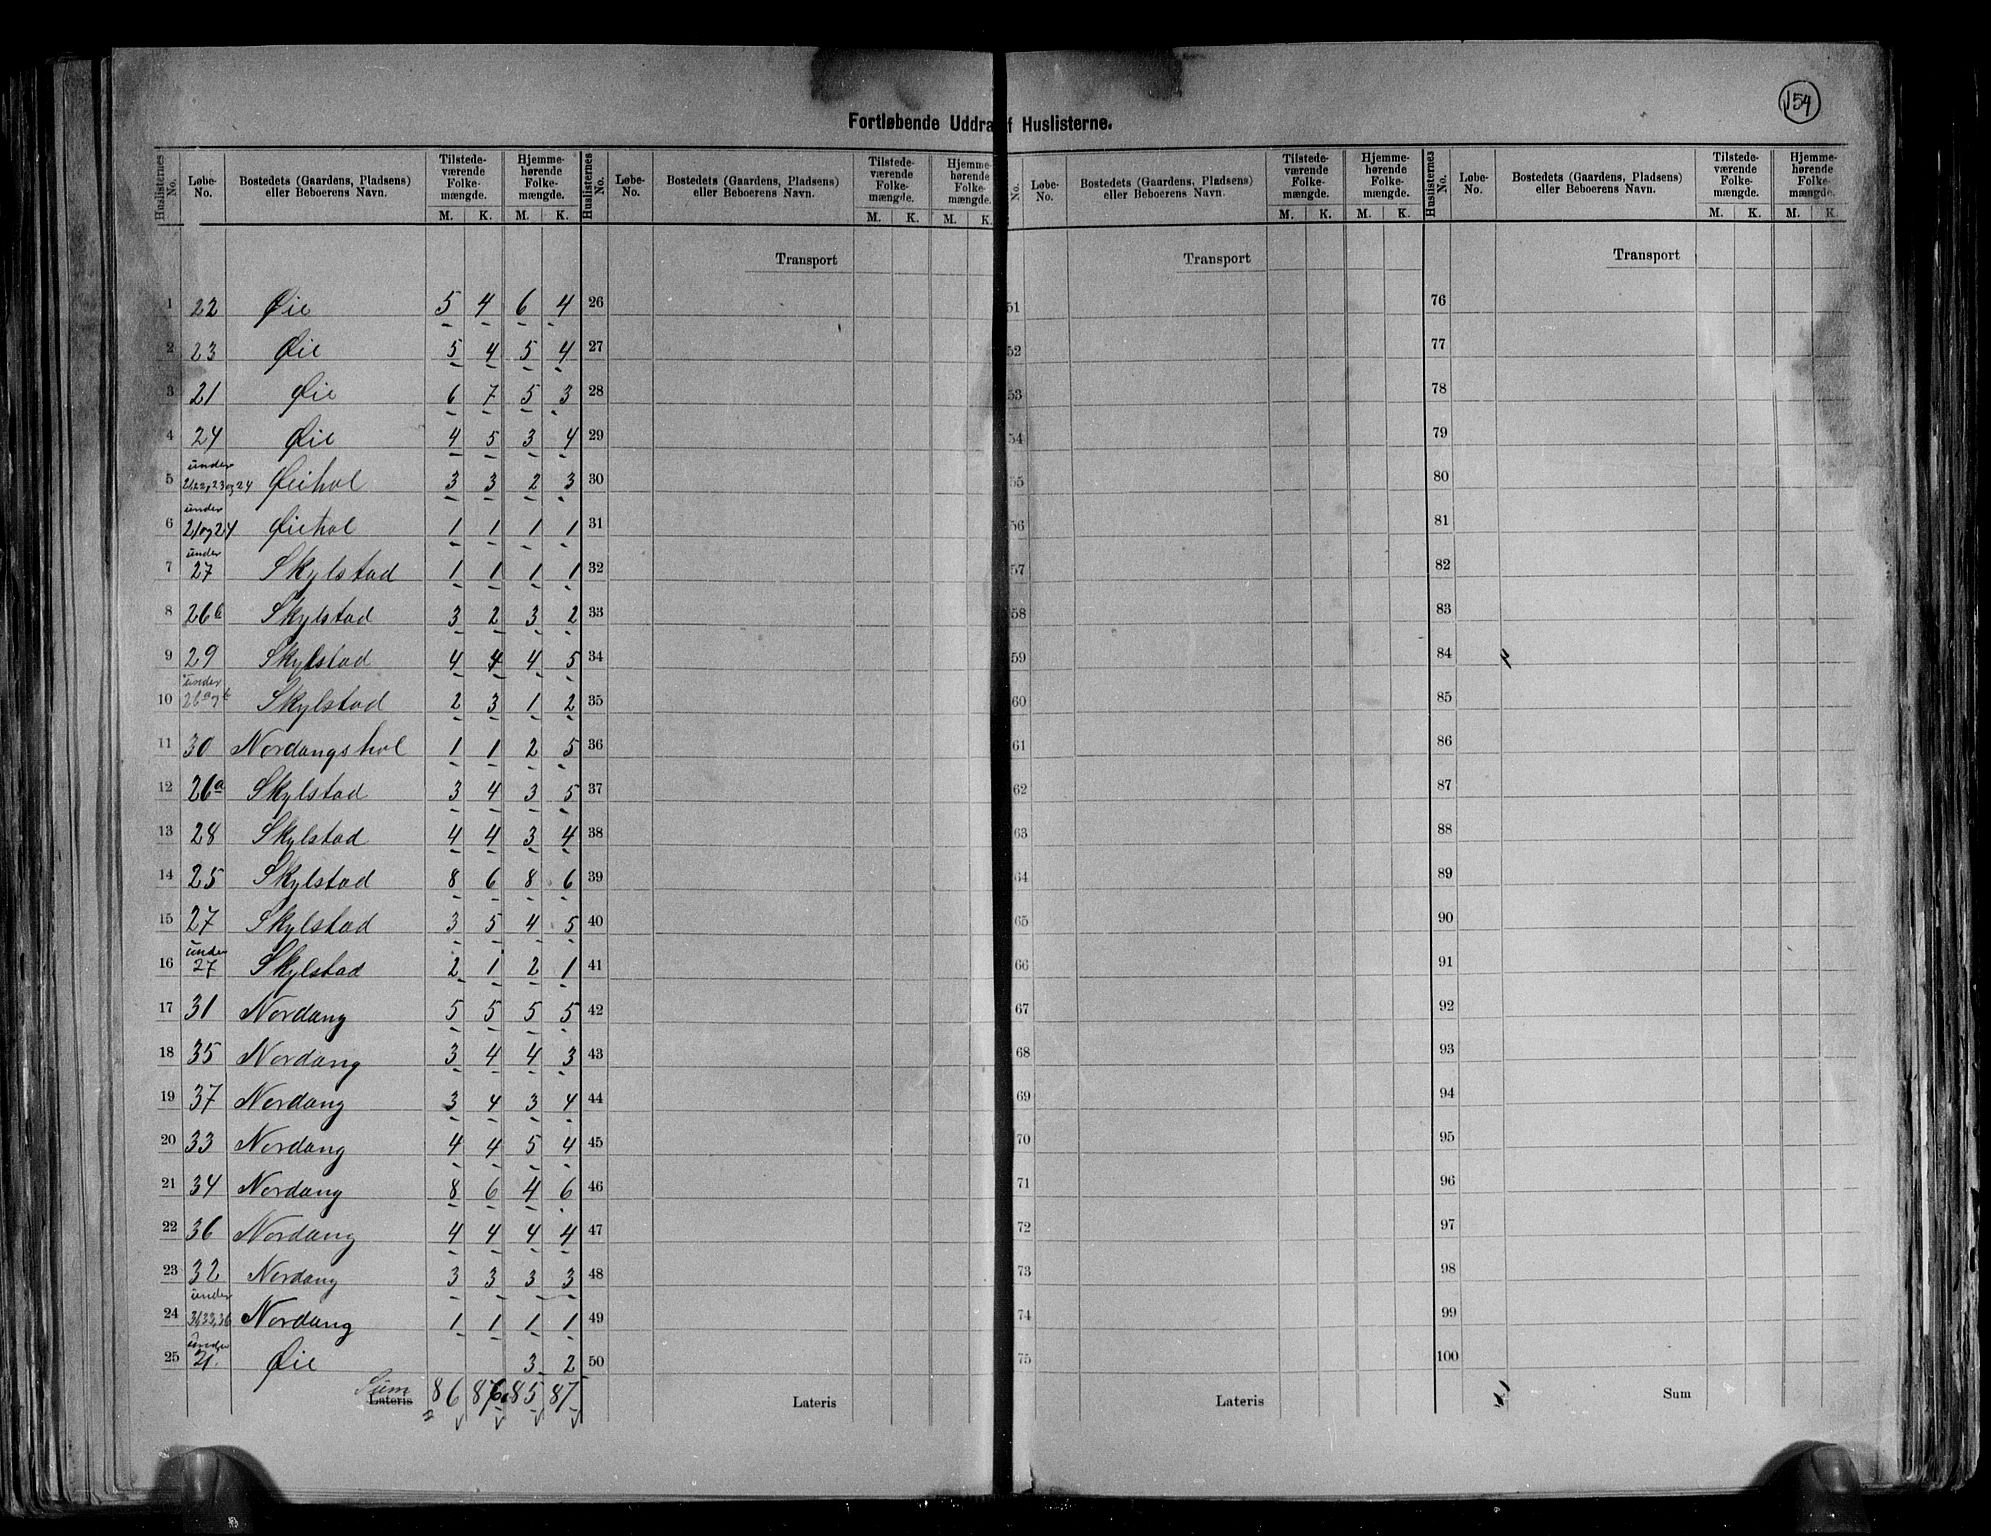 154
Fortløbende Uddra f Huslisterne.
Huslisternes No. | Løbe-No. | Bostedets (Gaardens, Pladsens) eller Beboerens Navn. | Tilstedeværende Folkemængde. M. K. | Hjemmehørende Folkemængde. M. K. | Huslisternes No. | Løbe-No. | Bostedets (Gaardens, Pladsens) eller Beboerens Navn. | Tilstedeværende Folkemængde. M. K. | Hjemmehørende Folkemængde. M. K. | No. | Løbe-No. | Bostedets (Gaardens, Pladsens) eller Beboerens Navn. | Tilstedeværende Folkemængde. M. K. | Hjemmehørende Folkemængde. M. K. | Huslisternes No. | Løbe-No. | Bostedets (Gaardens, Pladsens) eller Beboerens Navn. | Tilstedeværende Folkemængde. M. K. | Hjemmehørende Folkemængde. M. K.
Transport Transport Transport
1 22 Øie 5 4 6 4 26 51 76
2 23 Øie 5 4 5 4 27 52 77
3 21 Øie 6 7 5 3 28 53 78
4 24 Øie 4 5 3 4 29 54 79
5 under 21,22,23og24 Øiehol 3 3 2 3 30 55 80
6 under 21og24 Øiehol 1 1 1 1 31 56 81
7 under 27 Skylstad 1 1 1 1 32 57 82
8 26b Skylstad 3 2 3 2 33 58 83
9 29 Skylstad 4 4 4 5 34 59 84
10 under 26a og b Skylstad 2 3 1 2 35 60 85
11 30 Nordangshol 1 1 2 5 36 61 86
12 26a Skylstad 3 4 3 5 37 62 87
13 28 Skylstad 4 4 3 4 38 63 88
14 25 Skylstad 8 6 8 6 39 64 89
15 27 Skylstad 3 5 4 5 40 65 90
16 under 27 Skylstad 2 1 2 1 41 66 91
17 31 Nordang 5 5 5 5 42 67 92
18 35 Nordang 3 4 4 3 43 68 93
19 37 Nordang 3 4 3 4 44 69 94
20 33 Nordang 4 4 5 4 45 70 95
21 34 Nordang 8 6 4 6 46 71 96
22 36 Nordang 4 4 4 4 47 72 97
23 32 Nordang 3 3 3 3 48 73 98
24 under 31,33,36 Nordang 1 1 1 1 49 74 99
25 under 21. Øie 3 2 50 75 100
Sum Lateris 86 86 85 87 Lateris Lateris Sum